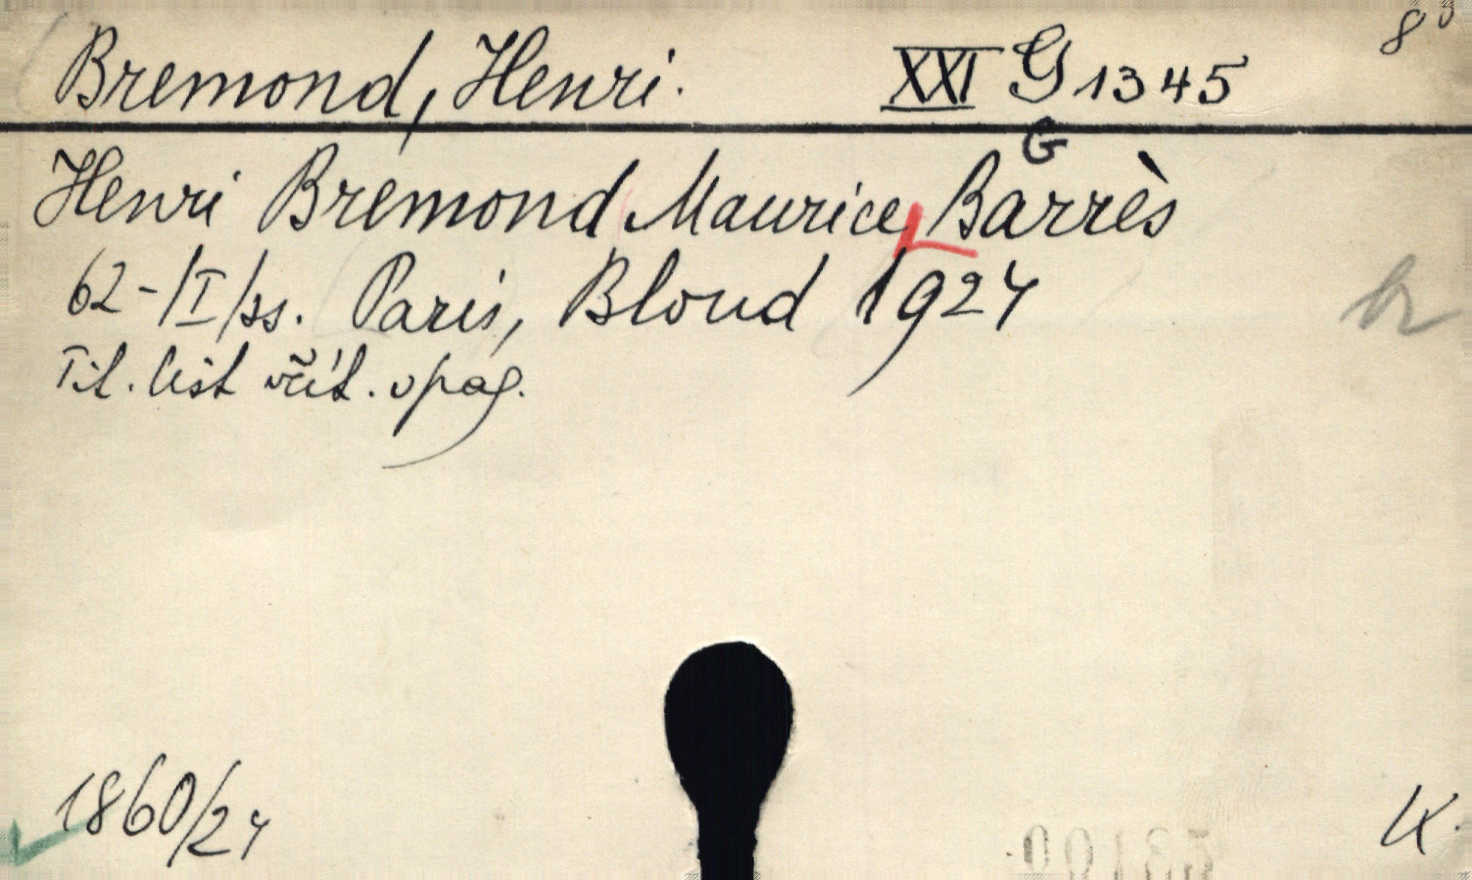 8°
Bremond, Henri. XXI G 1345
G
Henri Bremond Maurice Barrès
62-/I/ss. Paris, Bloud 1924
Tit. list včít. v pag.
br
1860/24
K.